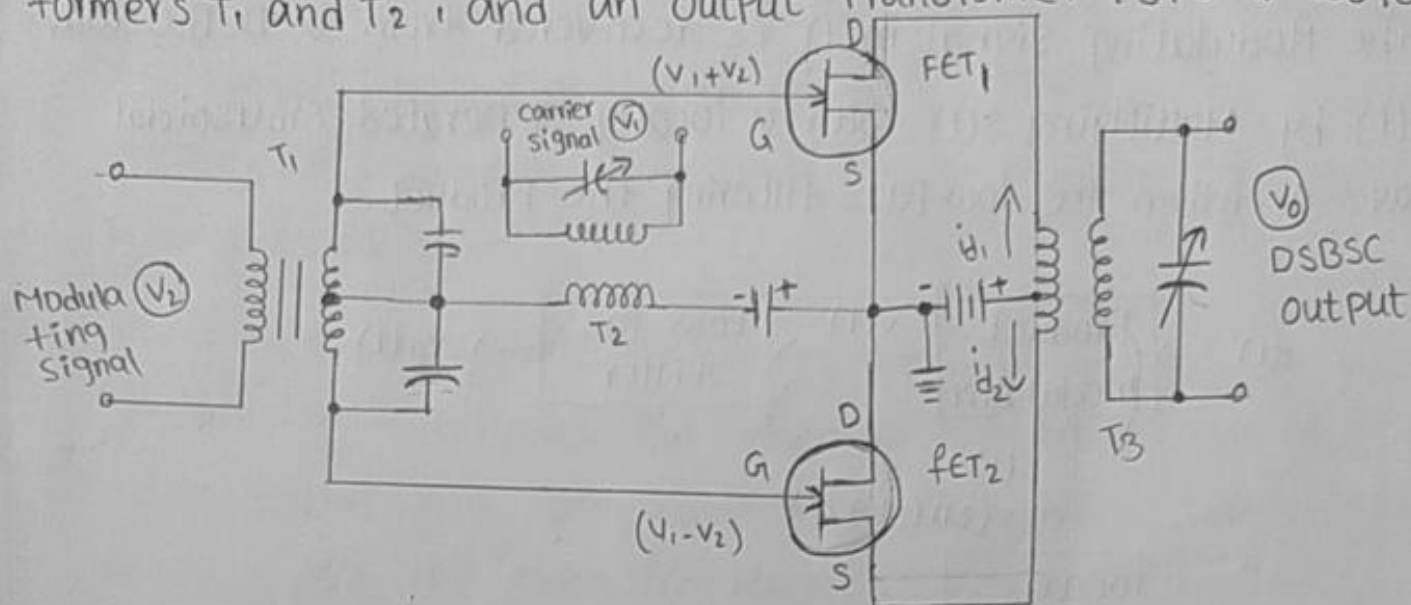 formers T₁ and T₂, and an output
D
FET₁
(V₁+V₂)
carrier
signal V₁
G
S
T₁
Modula
ting
signal
V₂
T₂
- +
- +
id₁
id₂
V₀
DSBSC
output
T₃
D
G
fET₂
(V₁-V₂)
S